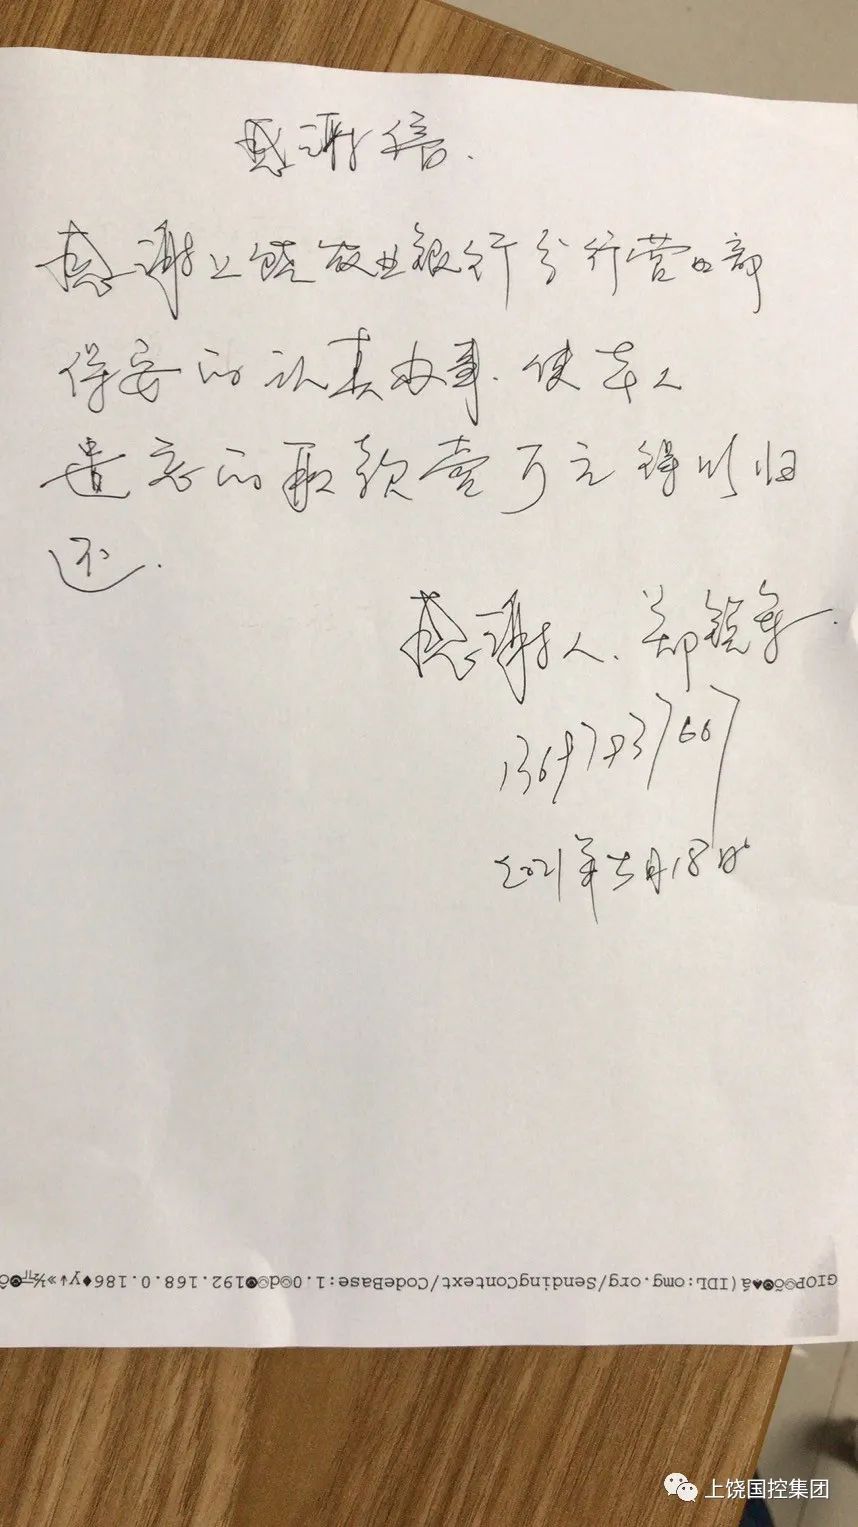 感谢信.
感谢上饶农业银行分行营业部
保安的认真办事.使本人
遗忘的取款壹万元得以归
还.
感谢人.郑锐
2021年5月18日
GIOP (IDL:omg.org/SendingContext/CodeBase:1.0 192.168.0.186
上饶国控集团